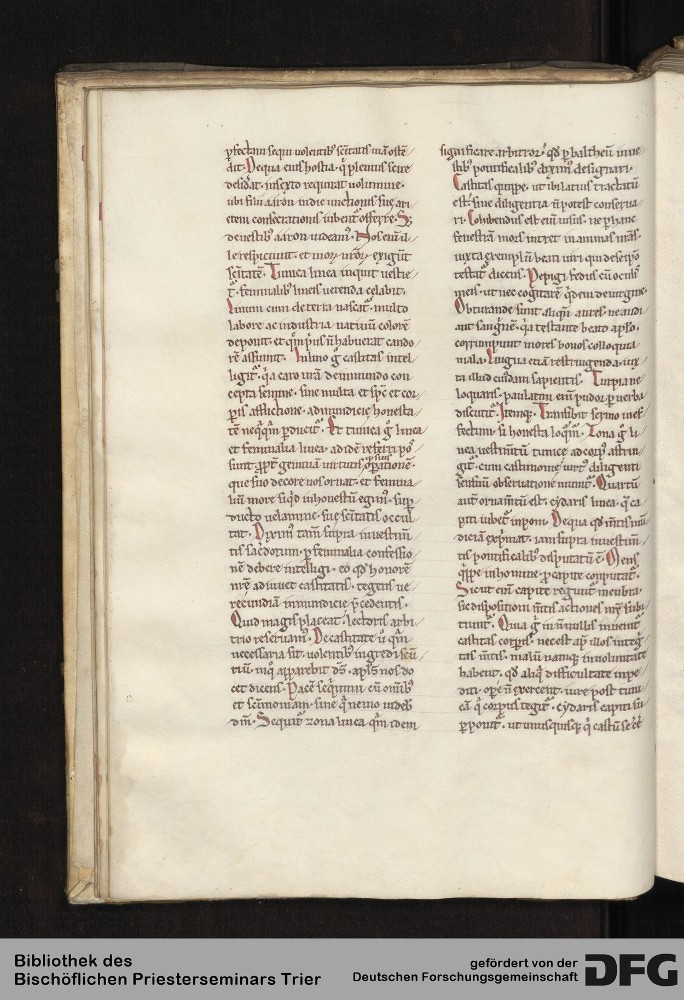 pfectam sequi volentib; scitatis uiā ostē
dit. De qua eius hostia. q̄ plenius scire
desidat. in sexto requirat uolumine.
ubi filii aaron in die unctionis suę ari
etem consecrationis iubent offerre.
de uestib; aaron uideam. Nos eni il
le respiciunt. et mor nror exigunt
scitatē. Tunica linea inquit uestie
t. feminalib; lineis uerenda celabit.
Linum cum de terra nascat. multo
labore ac industria natiuū colorē
deponit. et quē prius n habuerat cando
rē assumit. In lino g castitas intel
ligit. qa caro nrā de inmundo con
cepta semine. sine multa et spc et cor
pis afflictione. ad mundicię honesta
tē neqqm pducit. Et tunica g linea
et feminalia linea. ad idē referri pos
sunt. ppt geminā uirtutis opationē.
que suo decore nos ornat. et femina
liū more siqd inhonestū egim. sup
ducto uelamine. suę scitatis occul
tat. Dixim tam supra inuestim
tis sacdotum. p feminalia confessio
nē debere intelligi. eo qd honorē
nrē adiuuet castitatis. tegens ue
recundiā inmundicie pcedentis.
Quid magis placeat. lectoris arbi
trio reseruam. De castitate ū qm
necessaria sit. uolentib; ingredi scū
riū. inq apparebit ds. apls nos do
cet dicens. Pacē sequimini cū omib;
et scimoniam. sine q nemo uideb
dm. Sequit zona linea. qm idem
significare arbitror. qd p baltheū in ue
stib; pontificalib; dixim designari.
Castitas quippe. ut ibi latius tractatū
est. sine diligentia n potest conserua
ri. Cohibendus est eni uisus. ne p hanc
fenestrā mors intret in animas nrās.
iuxta exemplū beati uiri qui de se ipso
testat dicens. Pepigi fedus cū oculis
meis. ut nec cogitarē qdem de uirgine.
Obturande sunt aliqn aures. ne audi
ant sanguinē. qa testante beato aplo.
corrumpunt mores bonos colloquia
mala. Lingua etiā restringenda. iux
ta illud cuidam sapientis. Turpia ne
loquaris. paulatim eni pudor p uerba
discutit. Itemq. Transibit sermo inef
fectum. si honesta loqm. Zona g li
nea uestimtū tunice ad corp astrin
git. cum castimonie uirt. diligenti
sensuū obseruatione munit. Quartū
aut ornamtū est. cydaris linea. q ca
piti iubet inponi. De qua qd mtis mū
diciā exprimat. iam supra in uestim
tis pontificalib; disputatū ē. Mens
qppe in homine p capite computat.
Sicut eni capite regunt membra.
sic dispositioni mtis actiones nrę subi
ciunt. Quia g in nnullis inuenit
castitas corpis. nec est ap illos integ
tas mtis. malū namq in uoluntate
habent. qd aliq difficultate inpe
diti. ope n exercent. iure post tuni
cā q corpus tegit. cydaris capiti su
pponit. ut unusquisq q castū se ee
Bibliothek des
Bischöflichen Priesterseminars Trier
gefördert von der
Deutschen Forschungsgemeinschaft
DFG